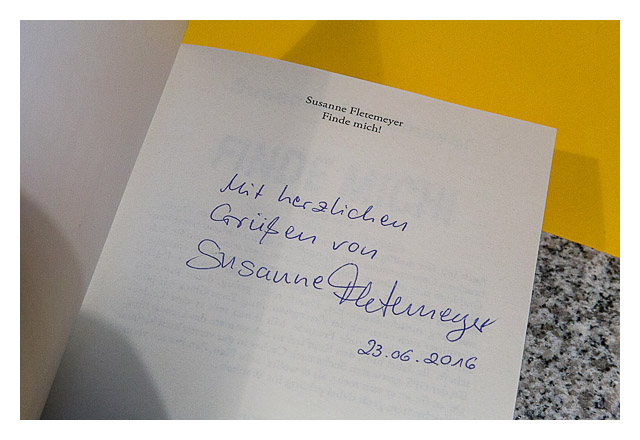 Susanne Fletemeyer
Finde mich!
Mit herzlichen
Grüßen von
Susanne Fletemeyer
23.06.2016